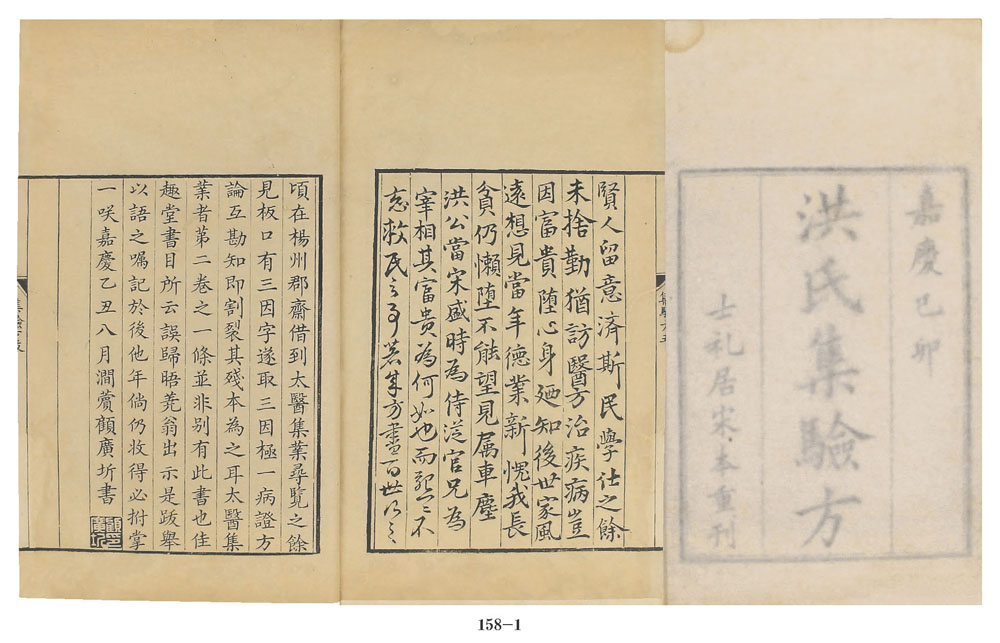 嘉慶己卯
洪氏集驗方
士礼居宋本重刊
賢人留意濟斯民學仕之餘
未捨勤猶訪醫方治疾病豈
因富貴堕心身廼知後世家風
遠想見當年德業新愧我長
貧仍懶堕不能望見属車塵
洪公當宋盛時為侍從官兄為
宰相其富貴為何如也而孜〻不
忘救民之事方書百世
頃在楊州郡齋借到太醫集業尋覽之餘
見板口有三因字遂取三因極一病證方
論互勘知即割裂其殘本為之耳太醫集
業者第二卷之一條並非别有此書也佳
趣堂書目所云誤歸晤蕘翁出示是跋舉
以語之囑記於後他年倘仍收得必拊掌
一咲嘉慶乙丑八月澗薲顧廣圻書
158-1